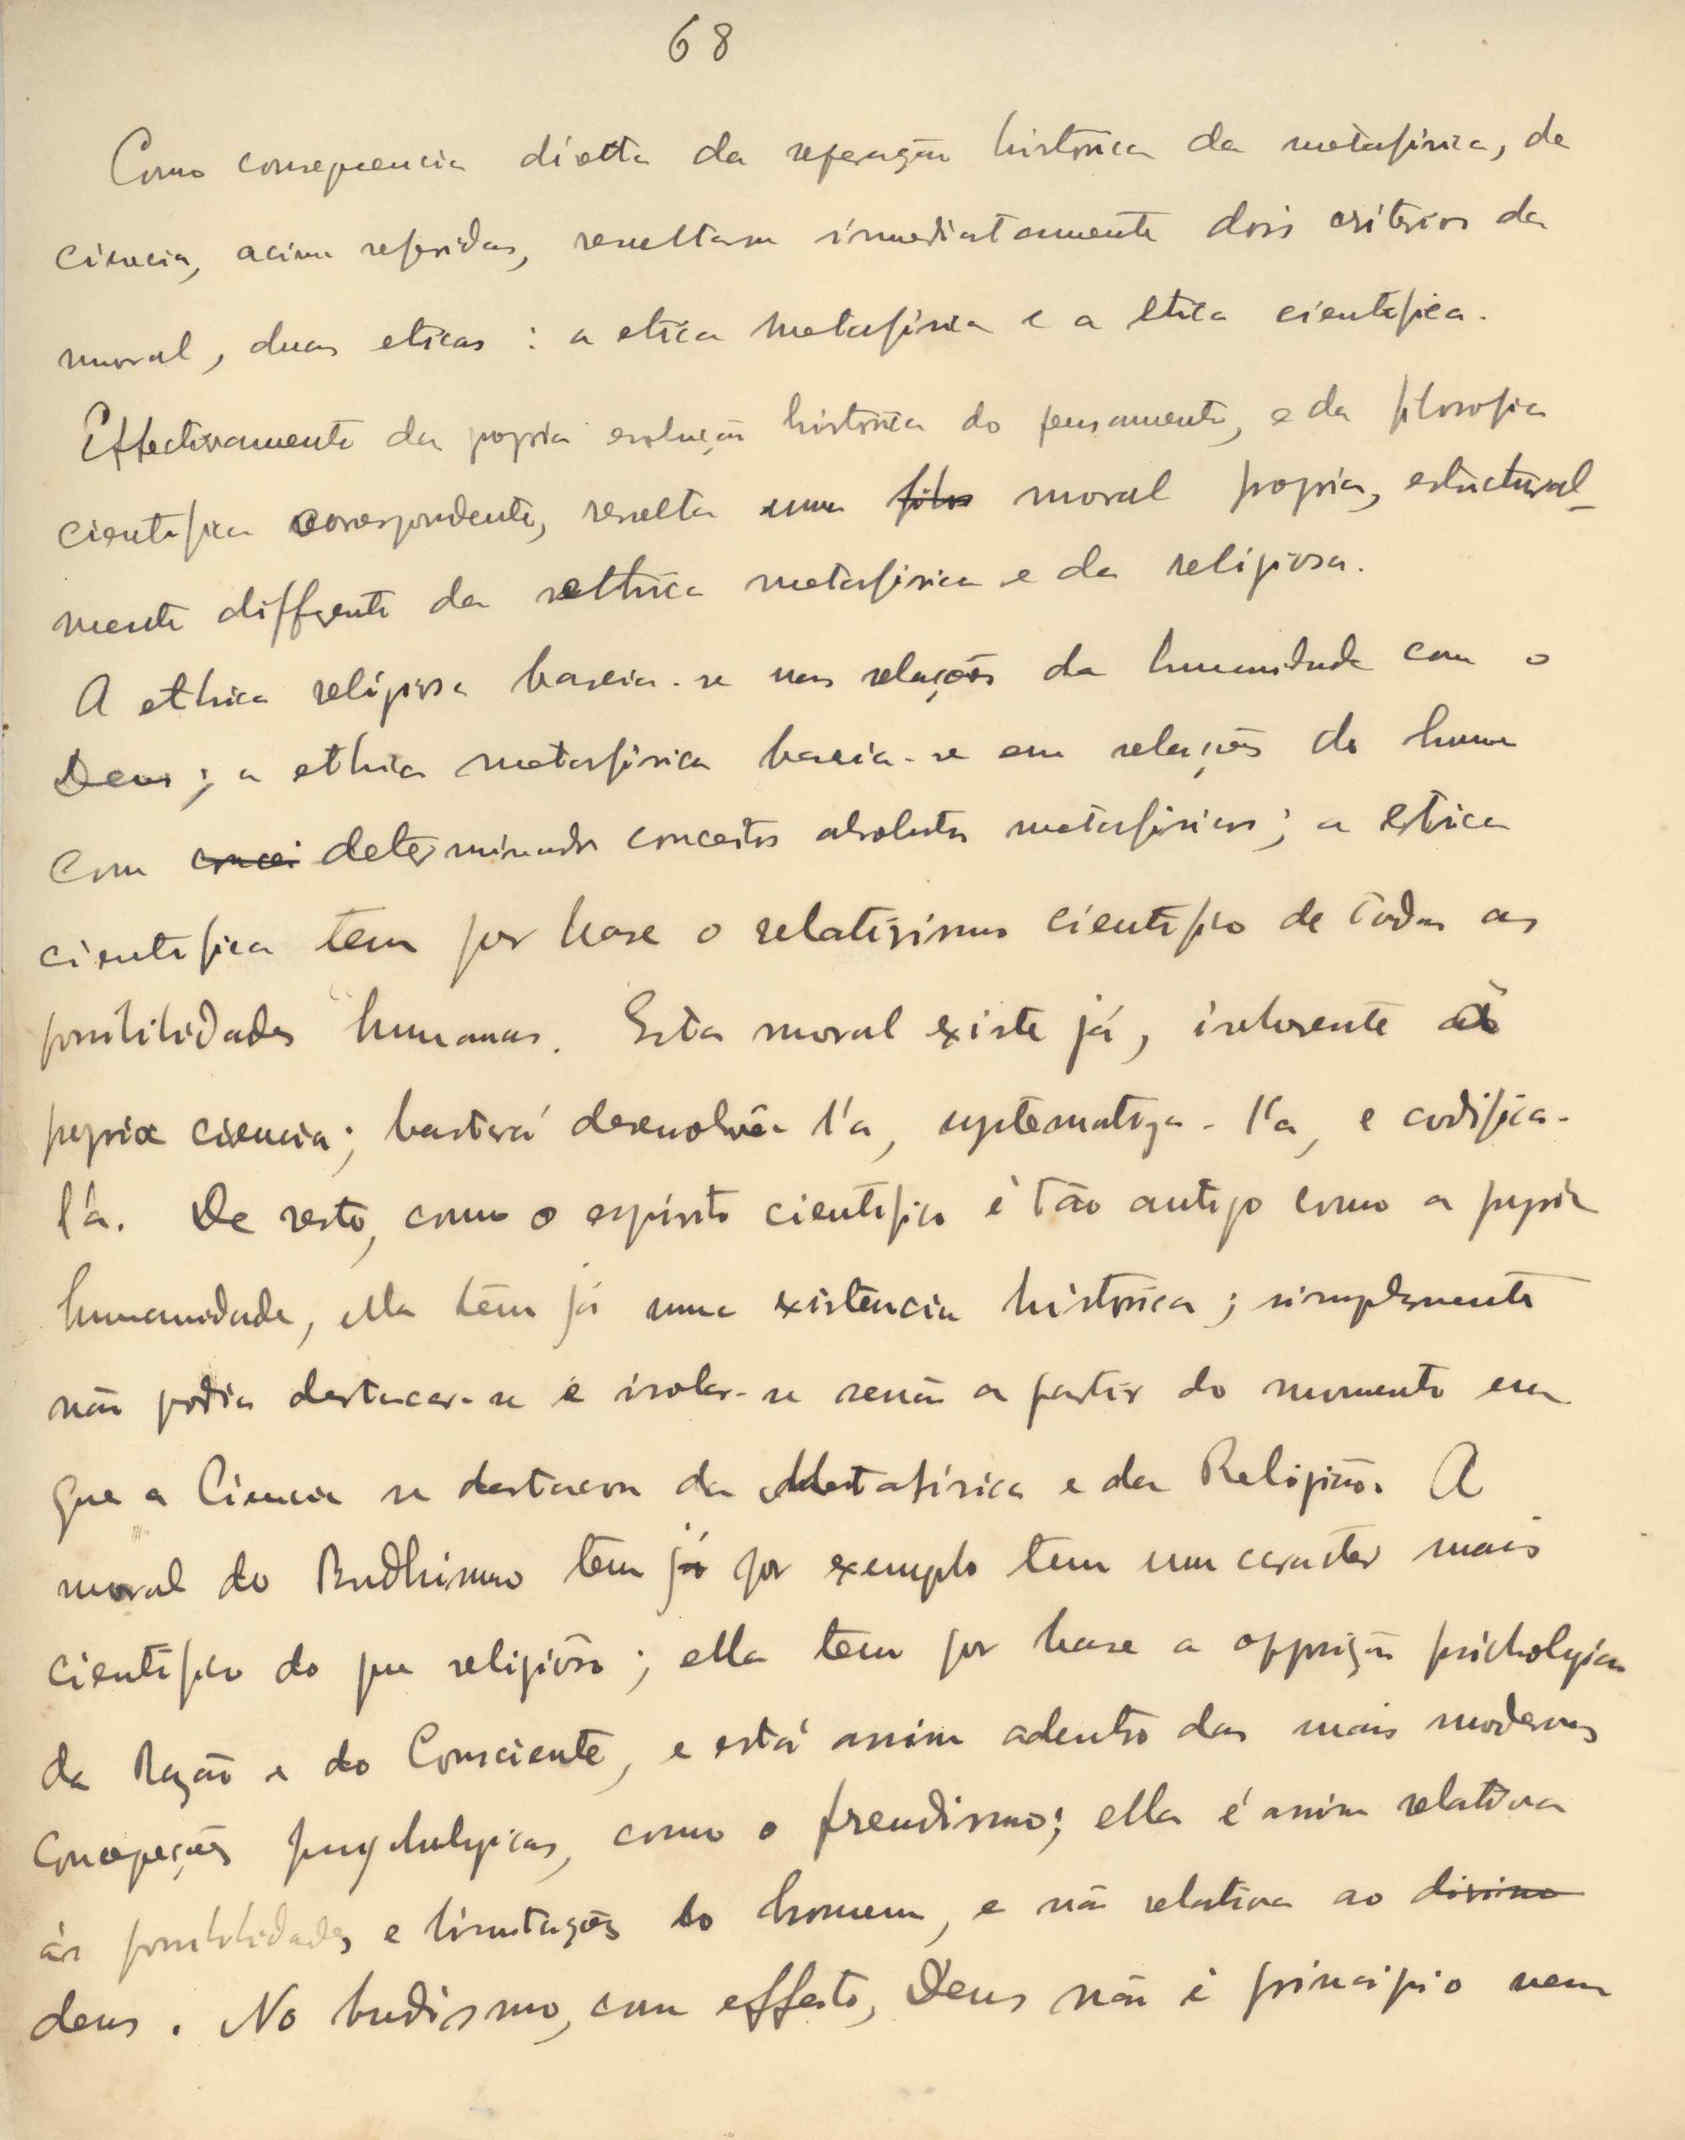 68
Como consequencia directa da separação historica da metafisica, da
ciencia, acima referidas, resultam immediatamente dois criterios da
moral, duas eticas : a etica metafisica e a etica cientifica.
Effectivamente da propria evolução historica do pensamento, e da filosofia
cientifica correspondente, resulta uma filos moral propria, estructural-
mente differente da ethica metafisica e da religiosa.
A ethica religiosa baseia-se nas relações da humanidade com o
Deus ; a ethica metafisica baseia-se em relações do homem
com concei determinados conceitos absolutos metafisicos ; a etica
cientifica tem por base o relativismo cientifico de todas as
possibilidades humanas. Esta moral existe já, inherente á
propria ciencia ; bastará desenvolvê-l'a, systematiza-l'a, e codifica-
l'a. De resto, como o espirito cientifico é tão antigo como a propria
humanidade, ella tem já uma existencia historica ; simplesmente
não podia destacar-se e isolar-se senão a partir do momento em
que a Ciencia se destacou da Metafisica e da Religião. A
moral do Budhismo tem já por exemplo tem um caracter mais
cientifico do que religioso ; ella tem por base a opposição psichologica
da Razão e do Consciente, e está assim adentro das mais modernas
concepções psychologicas, como o freudismo ; ella é assim relativa
ás possibilidades e limitações do homem, e não relativa ao divino
deus. No budismo, com effeito, Deus não é principio nem